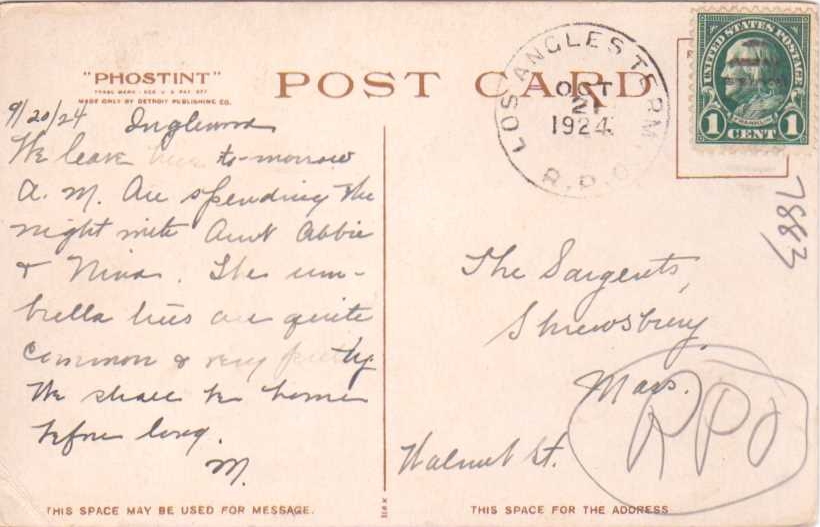 "PHOSTINT"
TRADE MARK - REG. U.S. PAT. OFF.
MADE ONLY BY DETROIT PUBLISHING CO.
POST CARD
LOS ANGLES TERM.
OCT
21
1924
R.P.O.
UNITED STATES POSTAGE
FRANKLIN
1 CENT 1
9/20/24 Inglewood
We leave here to-morrow
A.M. Are spending the
night with Aunt Abbie
& Nina. The um-
brella trees are quite
common & very pretty.
We shall be home
before long.
M.
The Sargents,
Shrewsbury,
Mass.
Walnut St.
7883
RPO
THIS SPACE MAY BE USED FOR MESSAGE.
THIS SPACE FOR THE ADDRESS